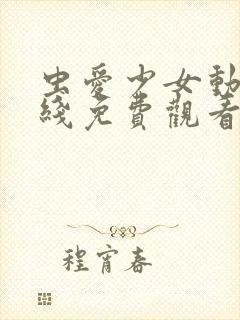 虫愛少女動
綫免費觀看
程宵春